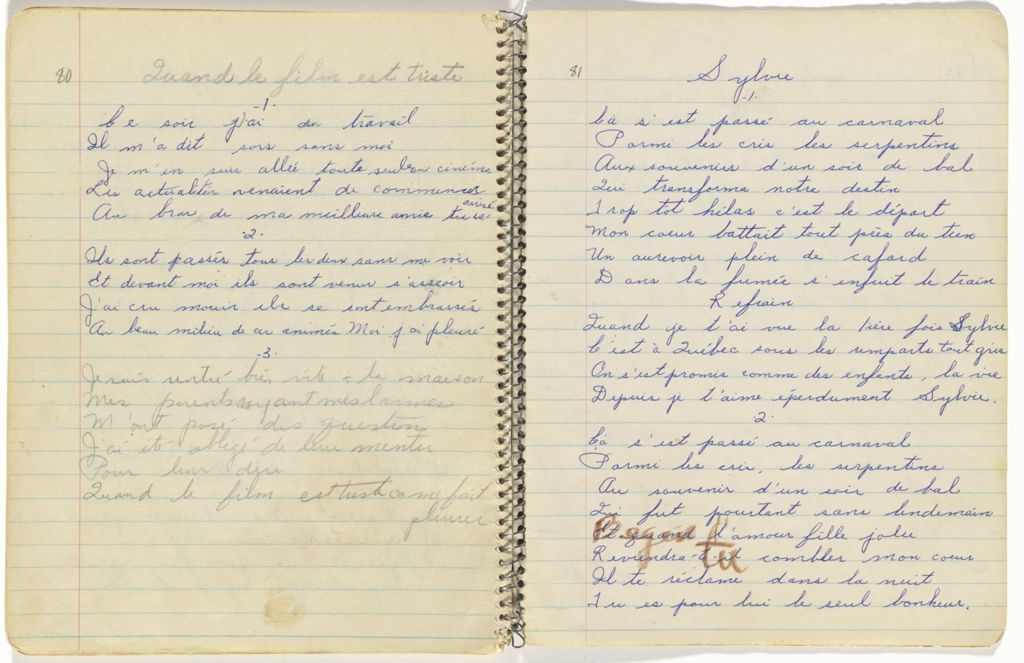 80
Quand le film est triste
-1-
Ce soir j'ai du travail
Il m'a dit sors sans moi
Je m'en suis allée toute seule au cinéma
Les actualités venaient de commencer
Au bras de ma meilleure amie
-2-
Ils sont passés tous les deux sans me voir
Et devant moi ils sont venus s'asseoir
J'ai cru mourir ils se sont embrassés
Au beau milieu de ce animés Moi j'ai pleuré
-3-
Je suis rentré bien vite à la maison
Mes parents voyant mes larmes
M'ont posé des question
J'ai été obligé de leur mentir
Pour leur dire
Quand le film est triste ca me fait
pleurer
81
Sylvie
-1-
Cà s'est passé au carnaval
Parmi les cris les serpentins
Aux souvenirs d'un soir de bal
Qui transforma notre destin
Trop tôt hélas c'est le départ
Mon coeur battait tout près du tien
Un aurevoir plein de cafard
Dans la fumée s'enfuit le train
Refrain
Quand je t'ai vue la 1ière fois Sylvie
C'est à Québec sous les remparts tout gris
On s'est promis comme des enfants, la vie
Depuis je t'aime éperdument Sylvie.
2
Cà s'est passé au carnaval
Parmi les cris, les serpentins
Au souvenir d'un soir de bal
Qui fut pourtant sans lendemain
Et quand l'amour fille jolie
Reviendra-t-il combler mon coeur
Il te réclame dans la nuit
Tu es pour lui le seul bonheur.